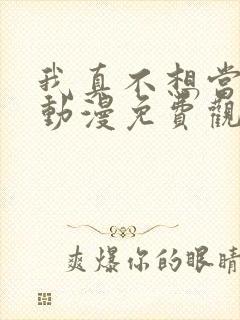 我真不想當
動漫免費觀
爽爆你的眼睛